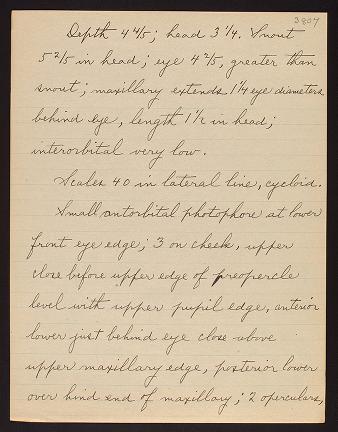 3807
Depth 4 4/5; head 3 1/4. Snout
5 2/5 in head; eye 4 2/5, greater than
snout; maxillary extends 1 1/4 eye diameters
behind eye, length 1 1/2 in head;
interorbital very low.
Scales 40 in lateral line, cycloid.
Small antorbital photophore at lower
front eye edge; 3 on cheek, upper
close before upper edge of preopercle
level with upper pupil edge, anterior
lower just behind eye close above
upper maxillary edge, posterior lower
over hind end of maxillary; 2 operculars,